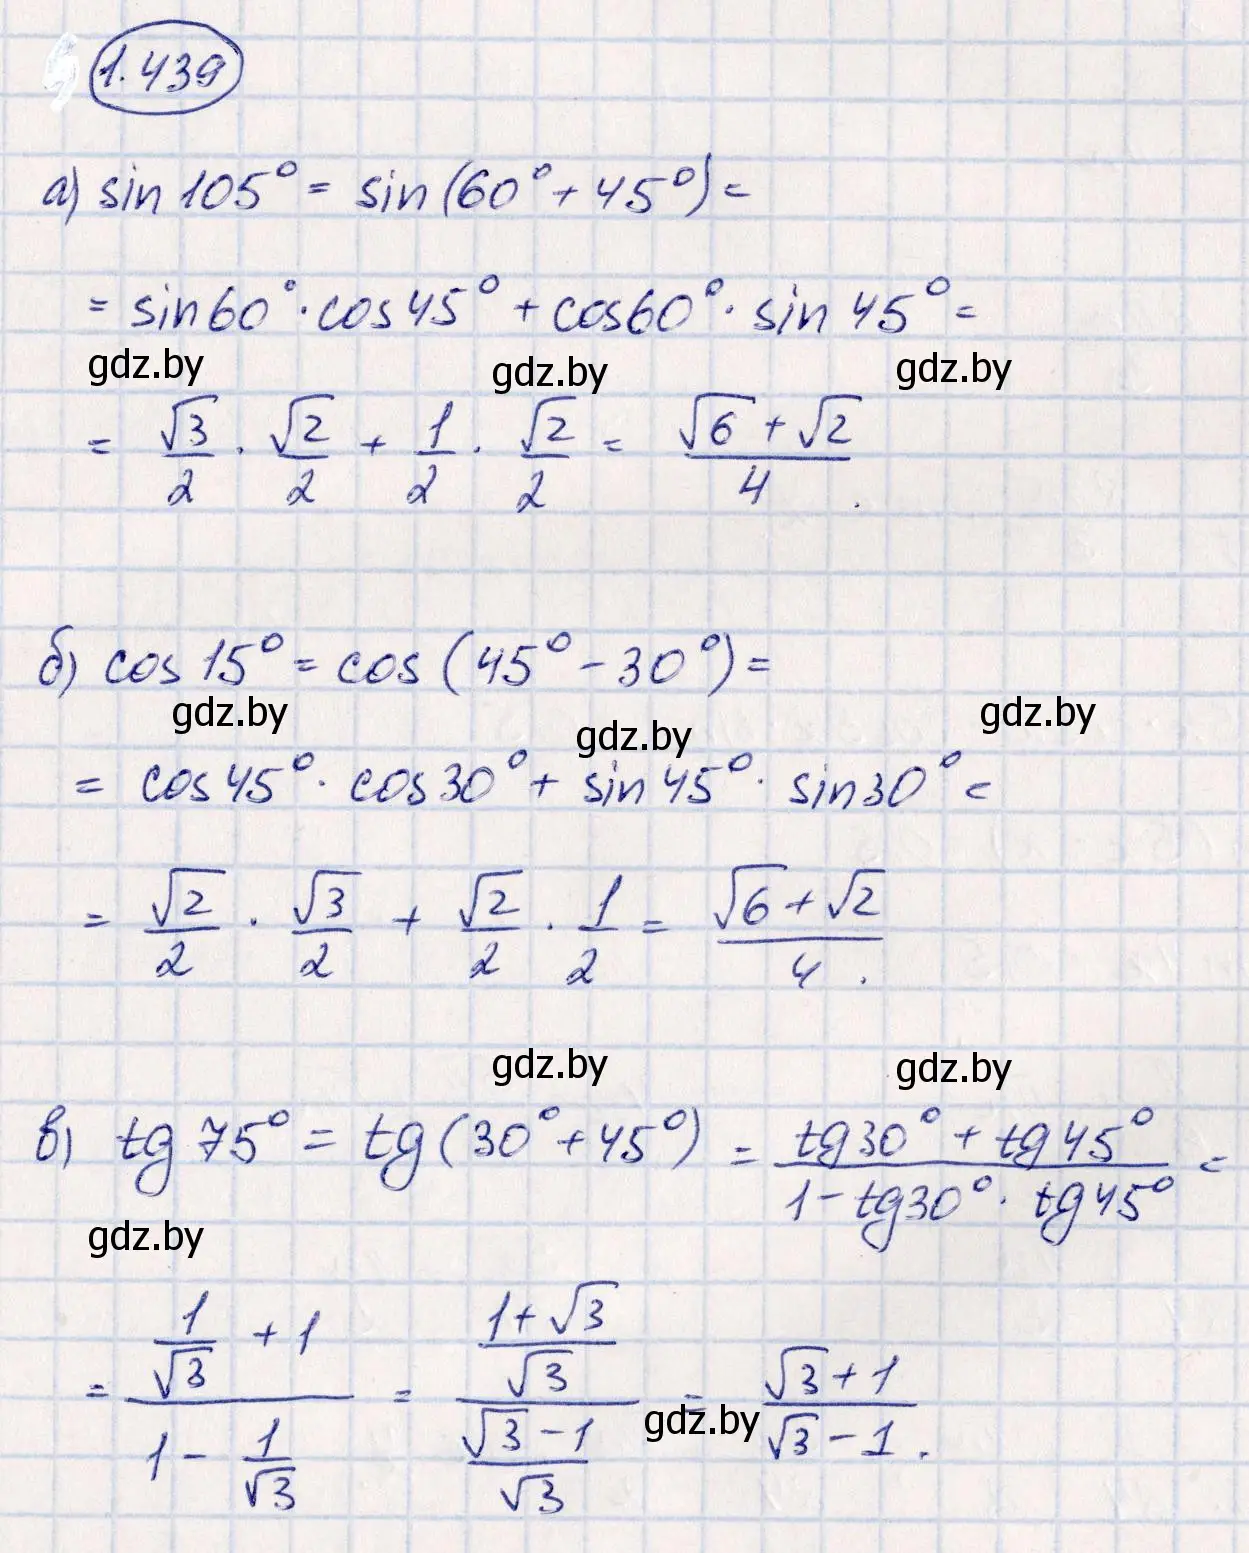 1.439
а) sin 105° = sin(60° + 45°) =
= sin60° · cos45° + cos60° · sin 45° =
gdz.by gdz.by gdz.by
= √3/2 · √2/2 + 1/2 · √2/2 = (√6 + √2)/4.
б) cos 15° = cos (45° - 30°) =
gdz.by gdz.by gdz.by
= cos45° · cos30° + sin45° · sin30° =
= √2/2 · √3/2 + √2/2 · 1/2 = (√6 + √2)/4.
gdz.by gdz.by
в) tg 75° = tg (30° + 45°) = (tg30° + tg45°)/(1 - tg30° · tg45°) =
gdz.by
= (1/√3 + 1)/(1 - 1/√3) = ((1 + √3)/√3)/((√3 - 1)/√3) = (√3 + 1)/(√3 - 1).
gdz.by